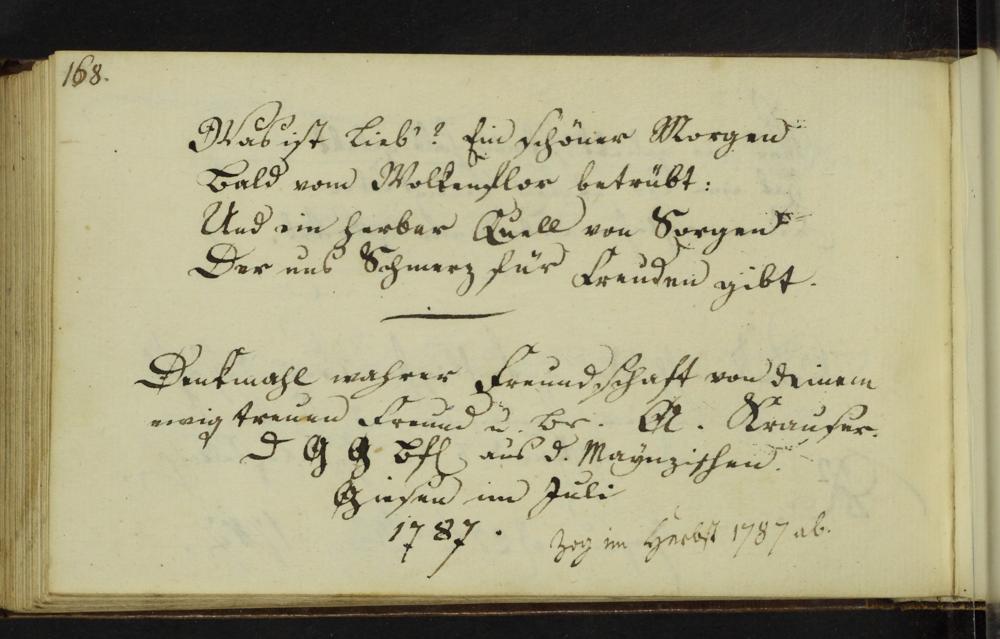 168.
Was ist Lieb'? Ein schöner Morgen
Bald vom Wolkenflor betrübt:
Und ein herber Quell von Sorgen
Der uns Schmerz für Freuden gibt.
Denkmahl wahrer Freundschaft von deinem
ewig treuen Freund u. Br. A. Krauser.
d G G Bfl aus d. Maynzischen.
Giesen im Juli
1787.
zog im Herbst 1787 ab.